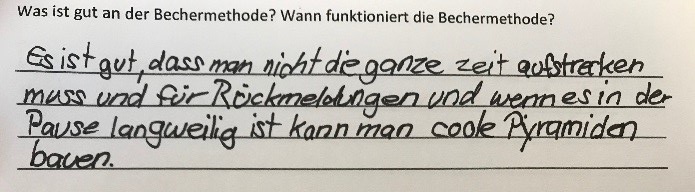 Was ist gut an der Bechermethode? Wann funktioniert die Bechermethode?
Es ist gut, dass man nicht die ganze zeit aufstrecken
muss und für Röckmeldungen und wenn es in der
Pause langweilig ist kann man coole Pyramiden
bauen.